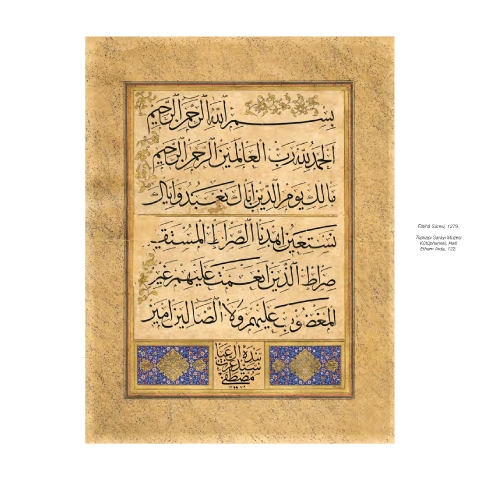 بسم الله الرحمن الرحيم
الحمد لله رب العالمين الرحمن الرحيم
مالك يوم الدين اياك نعبد واياك
نستعين اهدنا الصراط المستقيم
صراط الذين انعمت عليهم غير
المغضوب عليهم ولا الضالين امين
بنده آل عبا
سيد عزت
مصطفى
Fâtihâ Sûresi, 1279.
Topkapı Sarayı Müzesi
Kütüphanesi, Halil
Ethem Arda, 122.